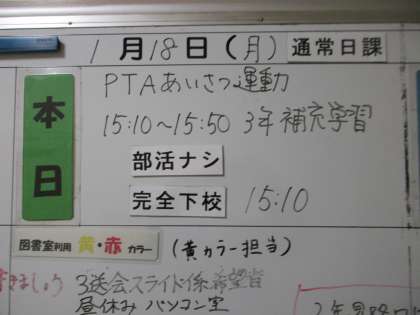 1月18日(月) 通常日課
本日
PTAあいさつ運動
15:10〜15:50 3年補充学習
部活ナシ
完全下校 15:10
図書室利用 黄・赤 カラー (黄カラー担当)
きましょう 3送会スライド係希望者
昼休み パソコン室